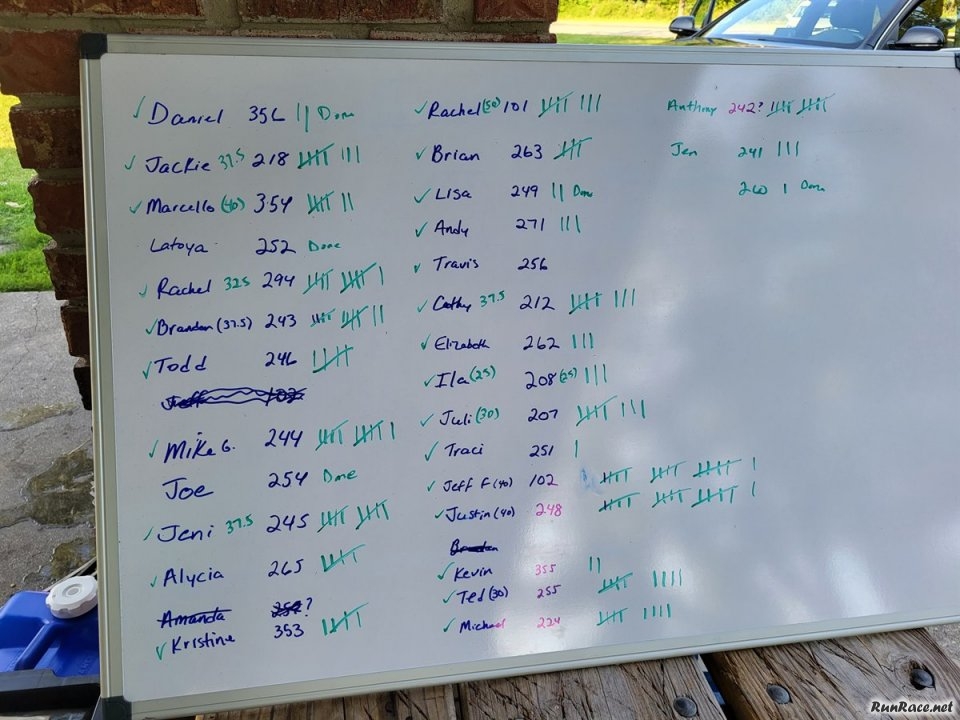 ✓ Daniel 356 || Done
✓ Jackie 37.5 218 |||| |||
✓ Marcello (40) 354 |||| ||
Latoya 252 Done
✓ Rachel 32.5 294 |||| |||| |
✓ Brandon (37.5) 243 |||| |||| ||
✓ Todd 246 ||||
Jeff 102
✓ Mike G. 244 |||| |||| |
Joe 254 Done
✓ Jeni 37.5 245 |||| ||||
✓ Alycia 265 ||||
Amanda 252?
✓ Kristine 353 ||||
✓ Rachel (50) 101 |||| |||
✓ Brian 263 ||||
✓ Lisa 249 || Done
✓ Andy 271 |||
✓ Travis 256
✓ Cathy 37.5 212 |||| |||
✓ Elizabeth 262 |||
✓ Ila (25) 208 (25) |||
✓ Juli (30) 207 |||| |||
✓ Traci 251 |
✓ Jeff F (40) 102 |||| |||| |||| |
✓ Justin (40) 248 |||| |||| |||| |
Branden
✓ Kevin 355 ||
✓ Ted (30) 255 |||| ||||
✓ Michael 224 |||| ||||
Anthony 242? |||| ||||
Jen 241 |||
260 | Done
RunRace.net